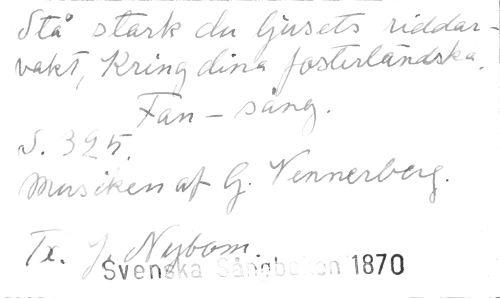 Stå stark du ljusets riddar-
vakt, Kring dina fosterländska.
Fan-sång.
S. 325.
Musiken af G. Wennerberg.
Tx. J. Nybom.
Svenska Sångboken 1870